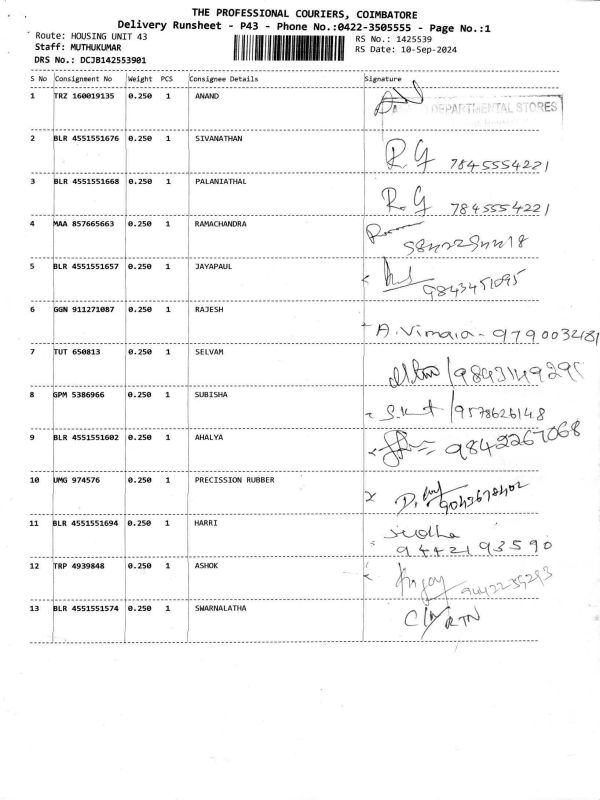 THE PROFESSIONAL COURIERS, COIMBATORE
Delivery Runsheet - P43 - Phone No.:0422-3505555 - Page No.:1
Route: HOUSING UNIT 43 RS No.: 1425539
Staff: MUTHUKUMAR RS Date: 10-Sep-2024
DRS No.: DCJB142553901
S No Consignment No Weight PCS Consignee Details Signature
1 TRZ 160019135 0.250 1 ANAND DEPARTMENTAL STORES
2 BLR 4551551676 0.250 1 SIVANATHAN R.G 7845554221
3 BLR 4551551668 0.250 1 PALANIATHAL R.G 7845554221
4 MAA 857665663 0.250 1 RAMACHANDRA
5 BLR 4551551657 0.250 1 JAYAPAUL 9843451095
6 GGN 911271087 0.250 1 RAJESH A.Vimala - 9790032481
7 TUT 650813 0.250 1 SELVAM
8 GPM 5386966 0.250 1 SUBISHA 9578626148
9 BLR 4551551602 0.250 1 AHALYA 9842267068
10 UMG 974576 0.250 1 PRECISSION RUBBER
11 BLR 4551551694 0.250 1 HARRI Sudha
9442193590
12 TRP 4939848 0.250 1 ASHOK
13 BLR 4551551574 0.250 1 SWARNALATHA RTN